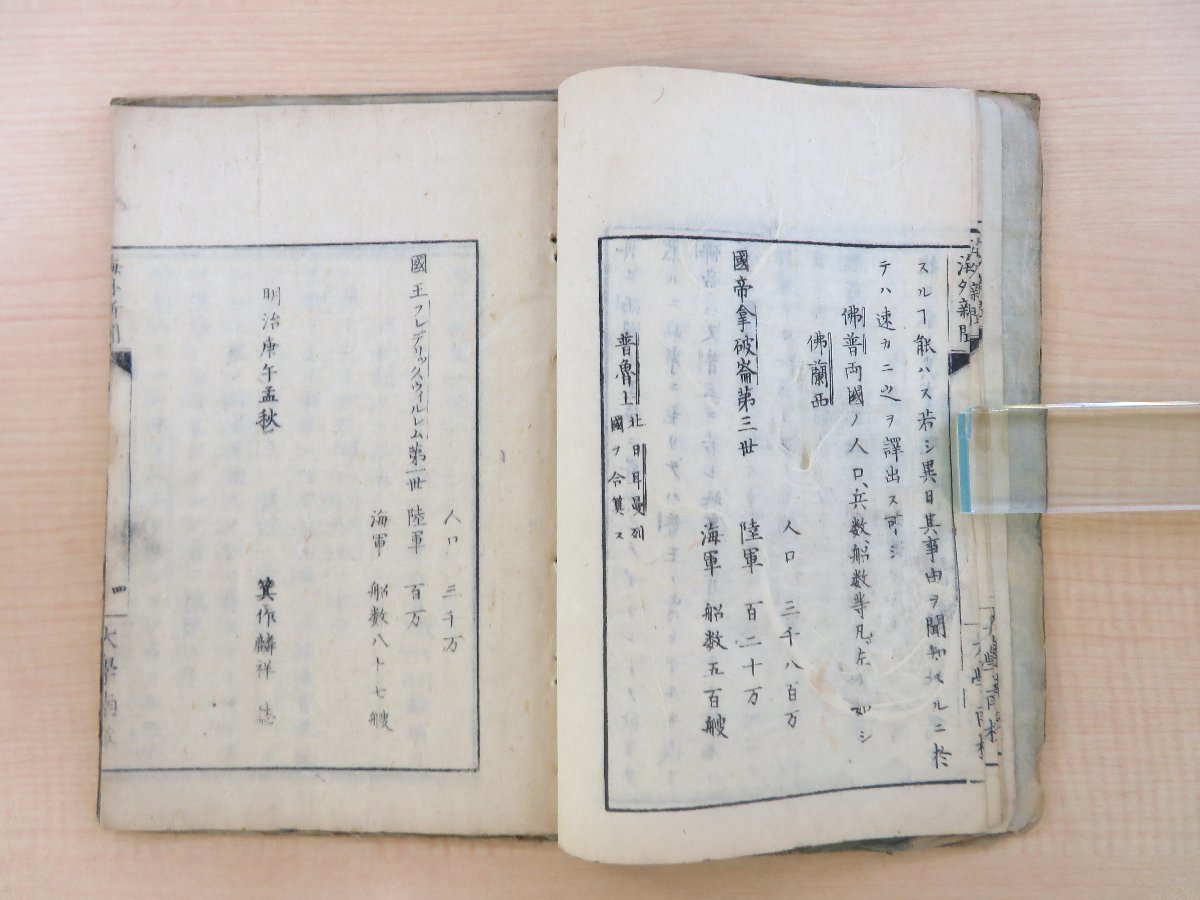 海外新聞
スルヿ能ハス若シ異日其事由ヲ聞知スルニ於
テハ速カニ之ヲ譯出ス可シ
佛普両國ノ人口、兵数、船数等凡ソ左ノ如シ
佛蘭西
人口 三千八百万
國帝拿破崙第三世 陸軍 百二十万
海軍 船数五百艘
普魯士 北日耳曼列
國ヲ合算ス
大學南校
人口 三千万
國王フレデリックウィルレム第一世 陸軍 百万
海軍 船数八十七艘
明治庚午孟秋 箕作麟祥 誌
四